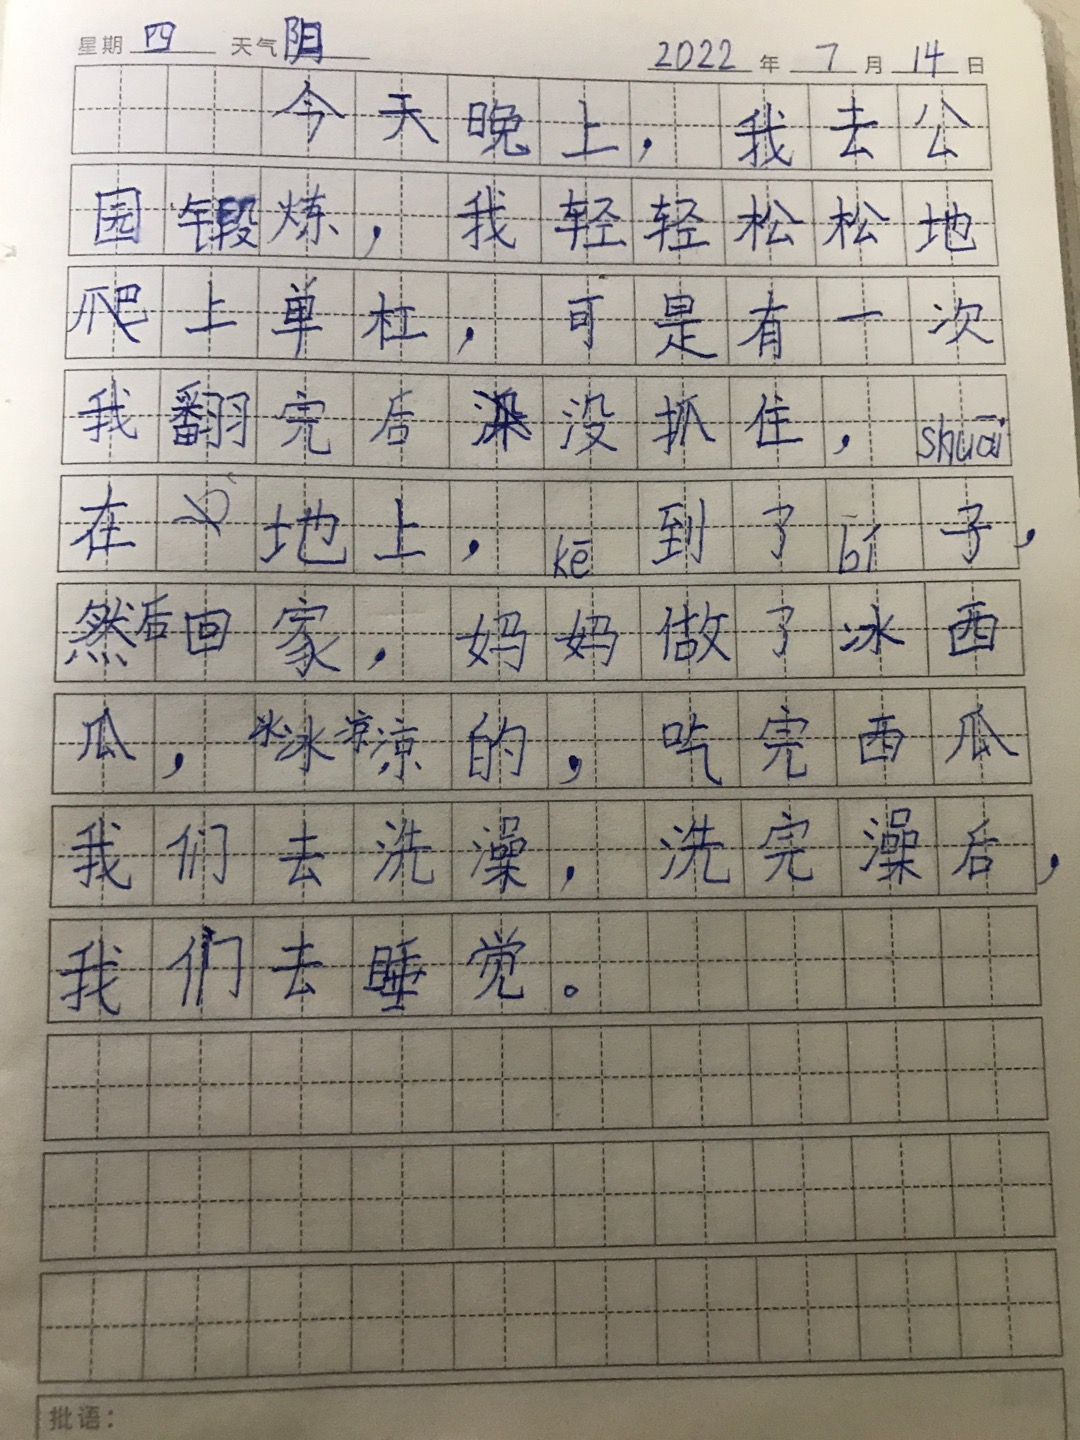 星期 四 天气 阴 2022 年 7 月 14 日
今天晚上，我去公
园锻炼，我轻轻松松地
爬上单杠，可是有一次
我翻完后没抓住，shuāi
在地上，kē到了bí子，
然后回家，妈妈做了冰西
瓜，冰冰凉凉的，吃完西瓜
我们去洗澡，洗完澡后，
我们去睡觉。
批语：